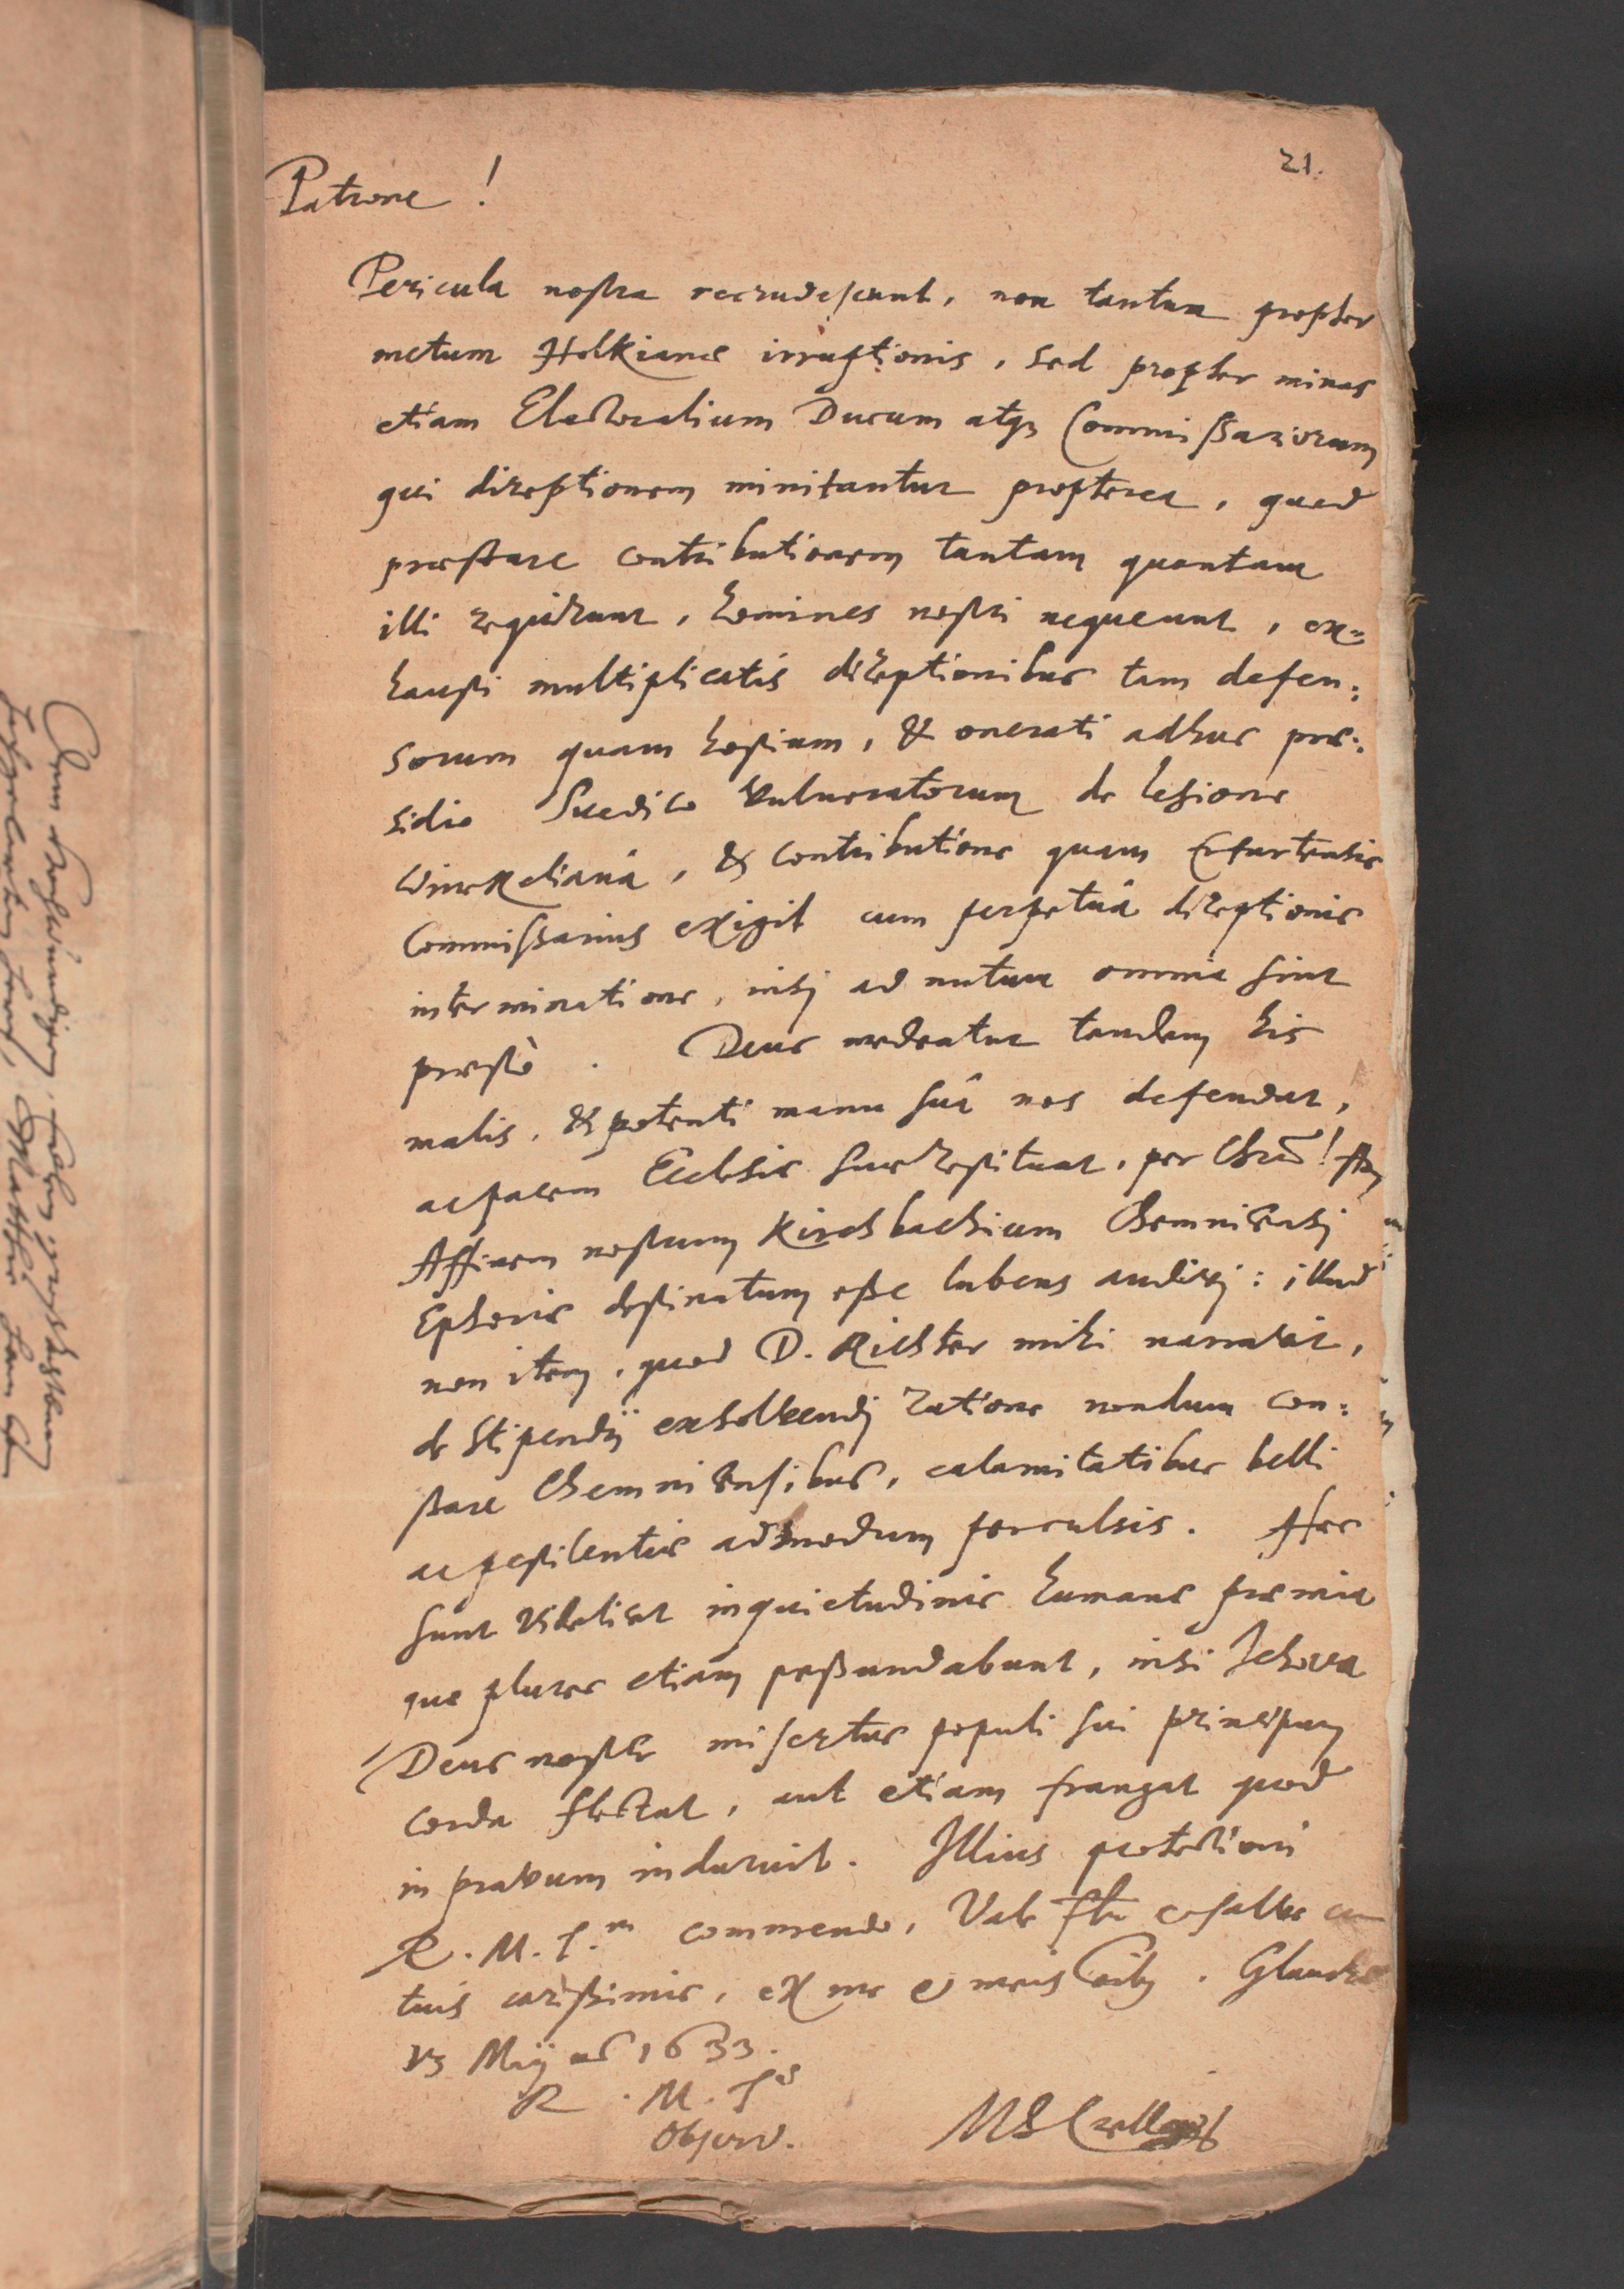 21.
Patrone!
Pericula nostra recrudescunt, non tantum propter
metum Holkianæ irruptionis, sed propter minas
etiam Electoralium Ducum atq; Commissariorum
qui direptionem minitantur propterea, quod
præstare contributionem tantam quantam
illi requirunt, homines nostri nequeunt, ex=
hausti multiplicatis direptionibus tam defen:
sorum quam hostium, & onerati adhuc præ:
sidio Suedico vulneratorum de legione
Winckelianâ, & contributione quam Erfurtensis
Commissarius exigit cum perpetuâ direptionis
interminatione, nisi ad nutum omnia sint
præstò. Deus medeatur tandem his
malis, & potenti manu suâ nos defendat,
ac pacem Ecclesiæ suæ restituat, per Chrũ!
Affinem nostrum Kirchbachium Chemnicensi
Ephoriæ destinatum esse lubens audivi: illud
non item, quod D. Richter mihi narravit,
de stipendij exsolvendj ratione nondum con:
stare Chemnicensibus, calamitatibus belli
ac pestilentiæ admodum perculsis. Hæc
sunt videlicet inquietudinis humanæ præmia
quæ plures etiam pessundabunt, nisi Jehova
Deus noster misertus populi sui principum
corda flectat, aut etiam frangat quod
in pravum induruit. Illius protectioni
R. M. T.m commendo, Vale et salve cum
tuis carissimis, ex me et meis. Glauchæ
Maij 1633.
R. M. T.
Observ.